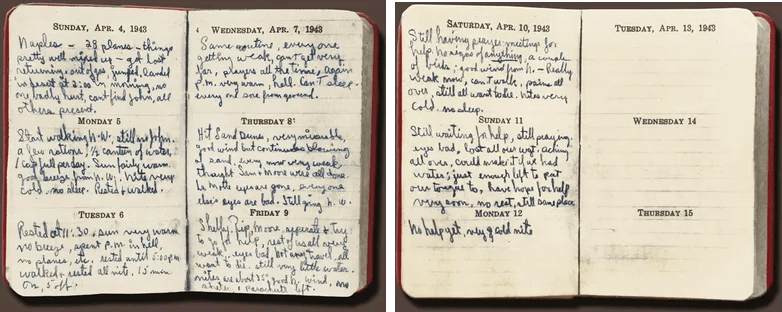 SUNDAY, APR. 4, 1943
Naples – 28 planes – things
pretty well mixed up – got lost
returning, out of gas, jumped, landed
in desert at 2:00 in morning, no
one badly hurt, cant find John, all
others present.
MONDAY 5
Start walking N.W., still no John.
a few rations, ½ canteen of water,
1 cap full per day. Sun fairly warm
good breeze from N.W. Nite very
cold. no sleep. Rested & walked.
TUESDAY 6
Rested at 11:30, sun very warm
no breeze, spent P.M. in hell,
no planes, etc. rested until 5:00 P.M.
walked & rested all nite. 15 min
on, 5 off.
WEDNESDAY, APR. 7, 1943
Same routine, everyone
getting weak, cant get very
far, prayers all the time, again
P.M. very warm, hell. Can't sleep.
every one sore from ground.
THURSDAY 8
Hit Sand Dunes, very miserable,
good wind but continuous blowing
of sand, every now very weak,
thought Sam & Moore were all done.
La Motte eyes are gone, everyone
else's eyes are bad. Still going N.W.
FRIDAY 9
Shelly, Rip, Moore separate & try
to go for help, rest of us all very
weak, eyes bad, not any travel, all
want to die. still very little water.
nites are about 35° good N. wind, no
shelter, 1 parachute left.
SATURDAY, APR. 10, 1943
Still having prayer meetings for
help. No signs of anything, a couple
of birds; good wind from N. – Really
weak now, cant walk, pains all
over, still all want to die. Nites very
cold. no sleep.
SUNDAY 11
Still waiting for help, still praying.
eyes bad, lost all our wgt. aching
all over, could make it if we had
water; just enough left to put
our tongue to, have hope for help
very soon, no rest, still same place.
MONDAY 12
No help yet, very cold nite
TUESDAY, APR. 13, 1943
WEDNESDAY 14
THURSDAY 15